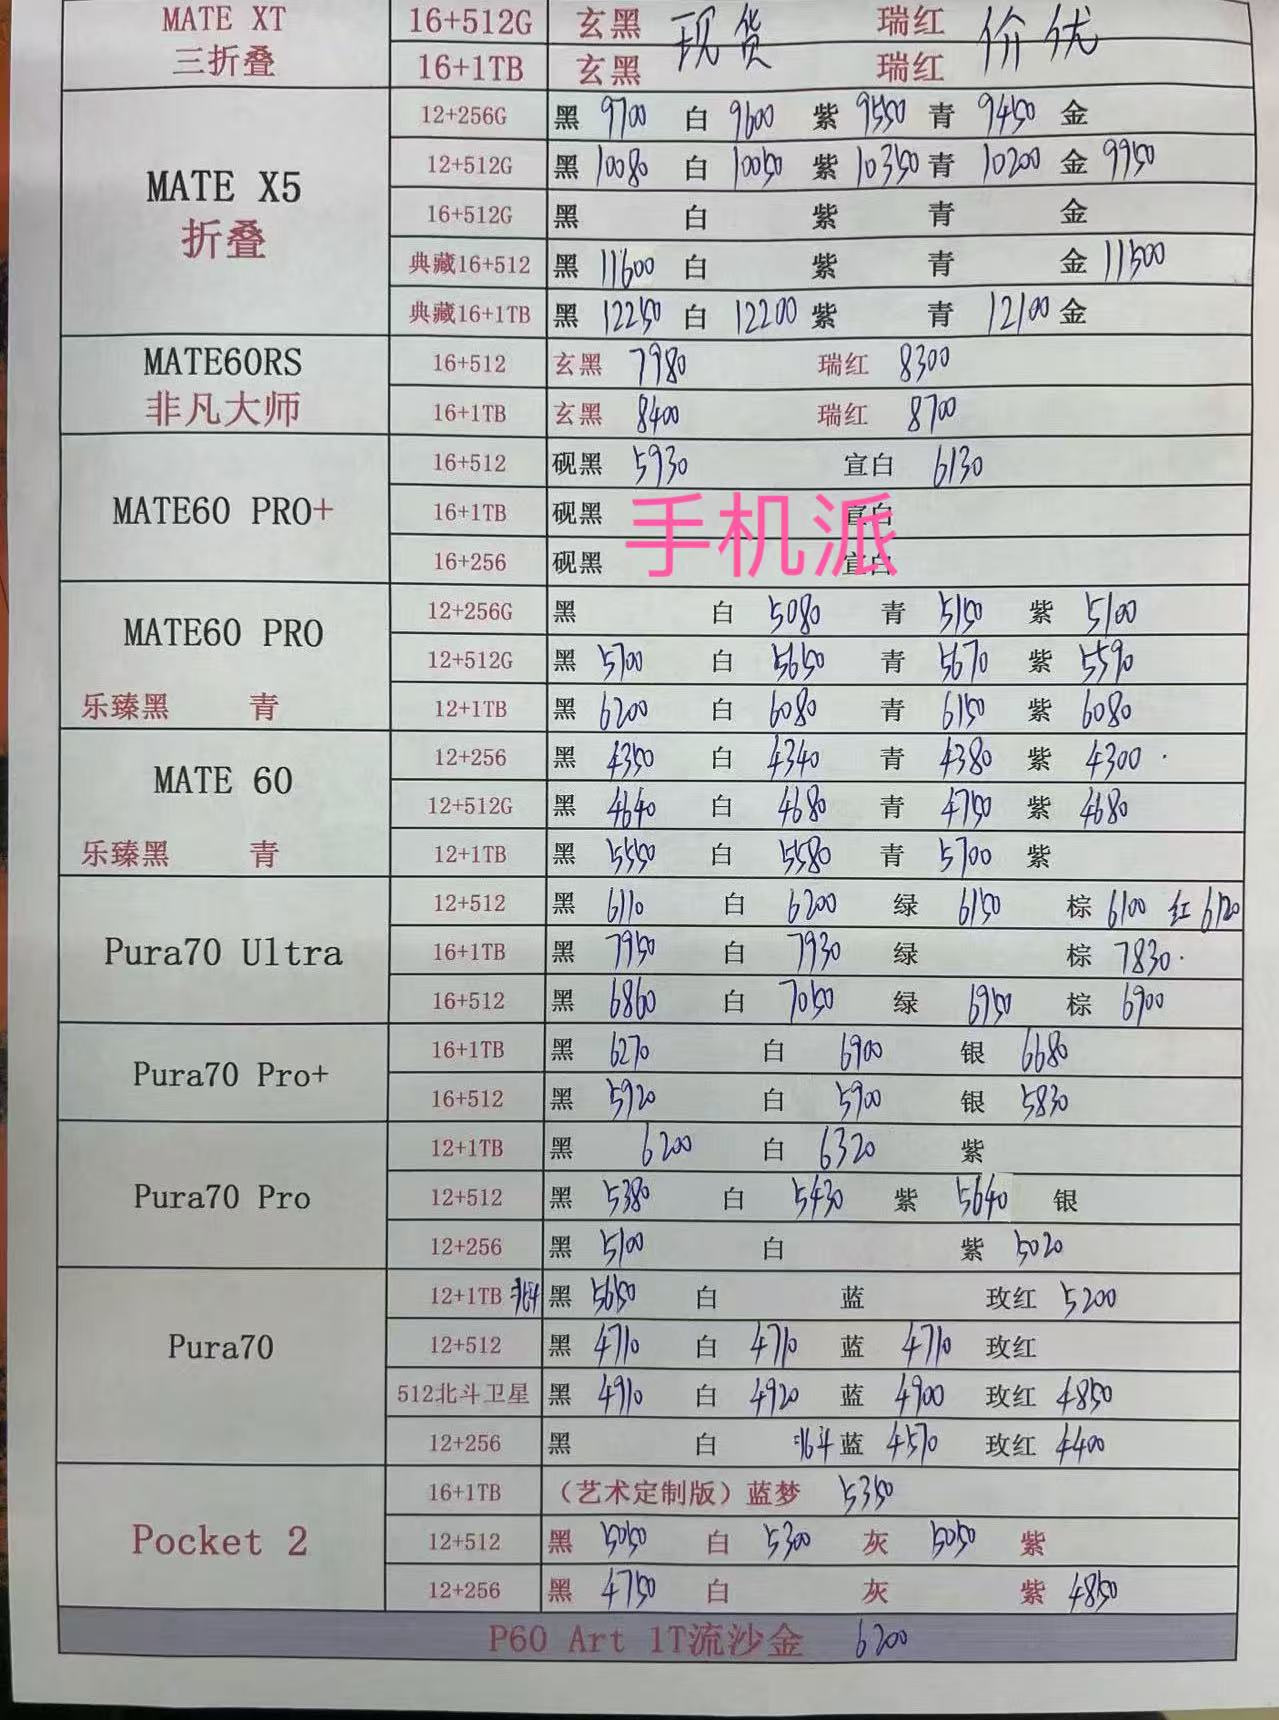 MATE XT 16+512G 玄黑 现货 瑞红 价优
三折叠 16+1TB 玄黑 瑞红
12+256G 黑 9700 白 9600 紫 9550 青 9450 金
12+512G 黑 10080 白 10050 紫 10350 青 10200 金 9950
MATE X5 16+512G 黑 白 紫 青 金
折叠 典藏16+512 黑 11600 白 紫 青 金 11500
典藏16+1TB 黑 12250 白 12200 紫 青 12100 金
MATE60RS 16+512 玄黑 7980 瑞红 8300
非凡大师 16+1TB 玄黑 8400 瑞红 8700
16+512 砚黑 5930 宣白 6130
MATE60 PRO+ 16+1TB 砚黑 宣白
手机派
16+256 砚黑 宣白
MATE60 PRO 12+256G 黑 白 5080 青 5150 紫 5100
12+512G 黑 5700 白 5650 青 5670 紫 5590
乐臻黑 青 12+1TB 黑 6200 白 6080 青 6150 紫 6080
MATE 60 12+256 黑 4350 白 4340 青 4380 紫 4300
12+512G 黑 4640 白 4680 青 4750 紫 4680
乐臻黑 青 12+1TB 黑 5550 白 5580 青 5700 紫
12+512 黑 6110 白 6200 绿 6150 棕 6100 红 6120
Pura70 Ultra 16+1TB 黑 7950 白 7930 绿 棕 7830
16+512 黑 6860 白 7050 绿 6950 棕 6900
Pura70 Pro+ 16+1TB 黑 6270 白 6900 银 6680
16+512 黑 5920 白 5900 银 5830
12+1TB 黑 6200 白 6320 紫
Pura70 Pro 12+512 黑 5380 白 5430 紫 5640 银
12+256 黑 5100 白 紫 5020
12+1TB 北斗 黑 5650 白 蓝 玫红 5200
Pura70 12+512 黑 4710 白 4710 蓝 4710 玫红
512北斗卫星 黑 4910 白 4920 蓝 4900 玫红 4850
12+256 黑 白 北斗 蓝 4570 玫红 4400
16+1TB （艺术定制版）蓝梦 5350
Pocket 2 12+512 黑 5050 白 5300 灰 5050 紫
12+256 黑 4750 白 灰 紫 4850
P60 Art 1T流沙金 6200